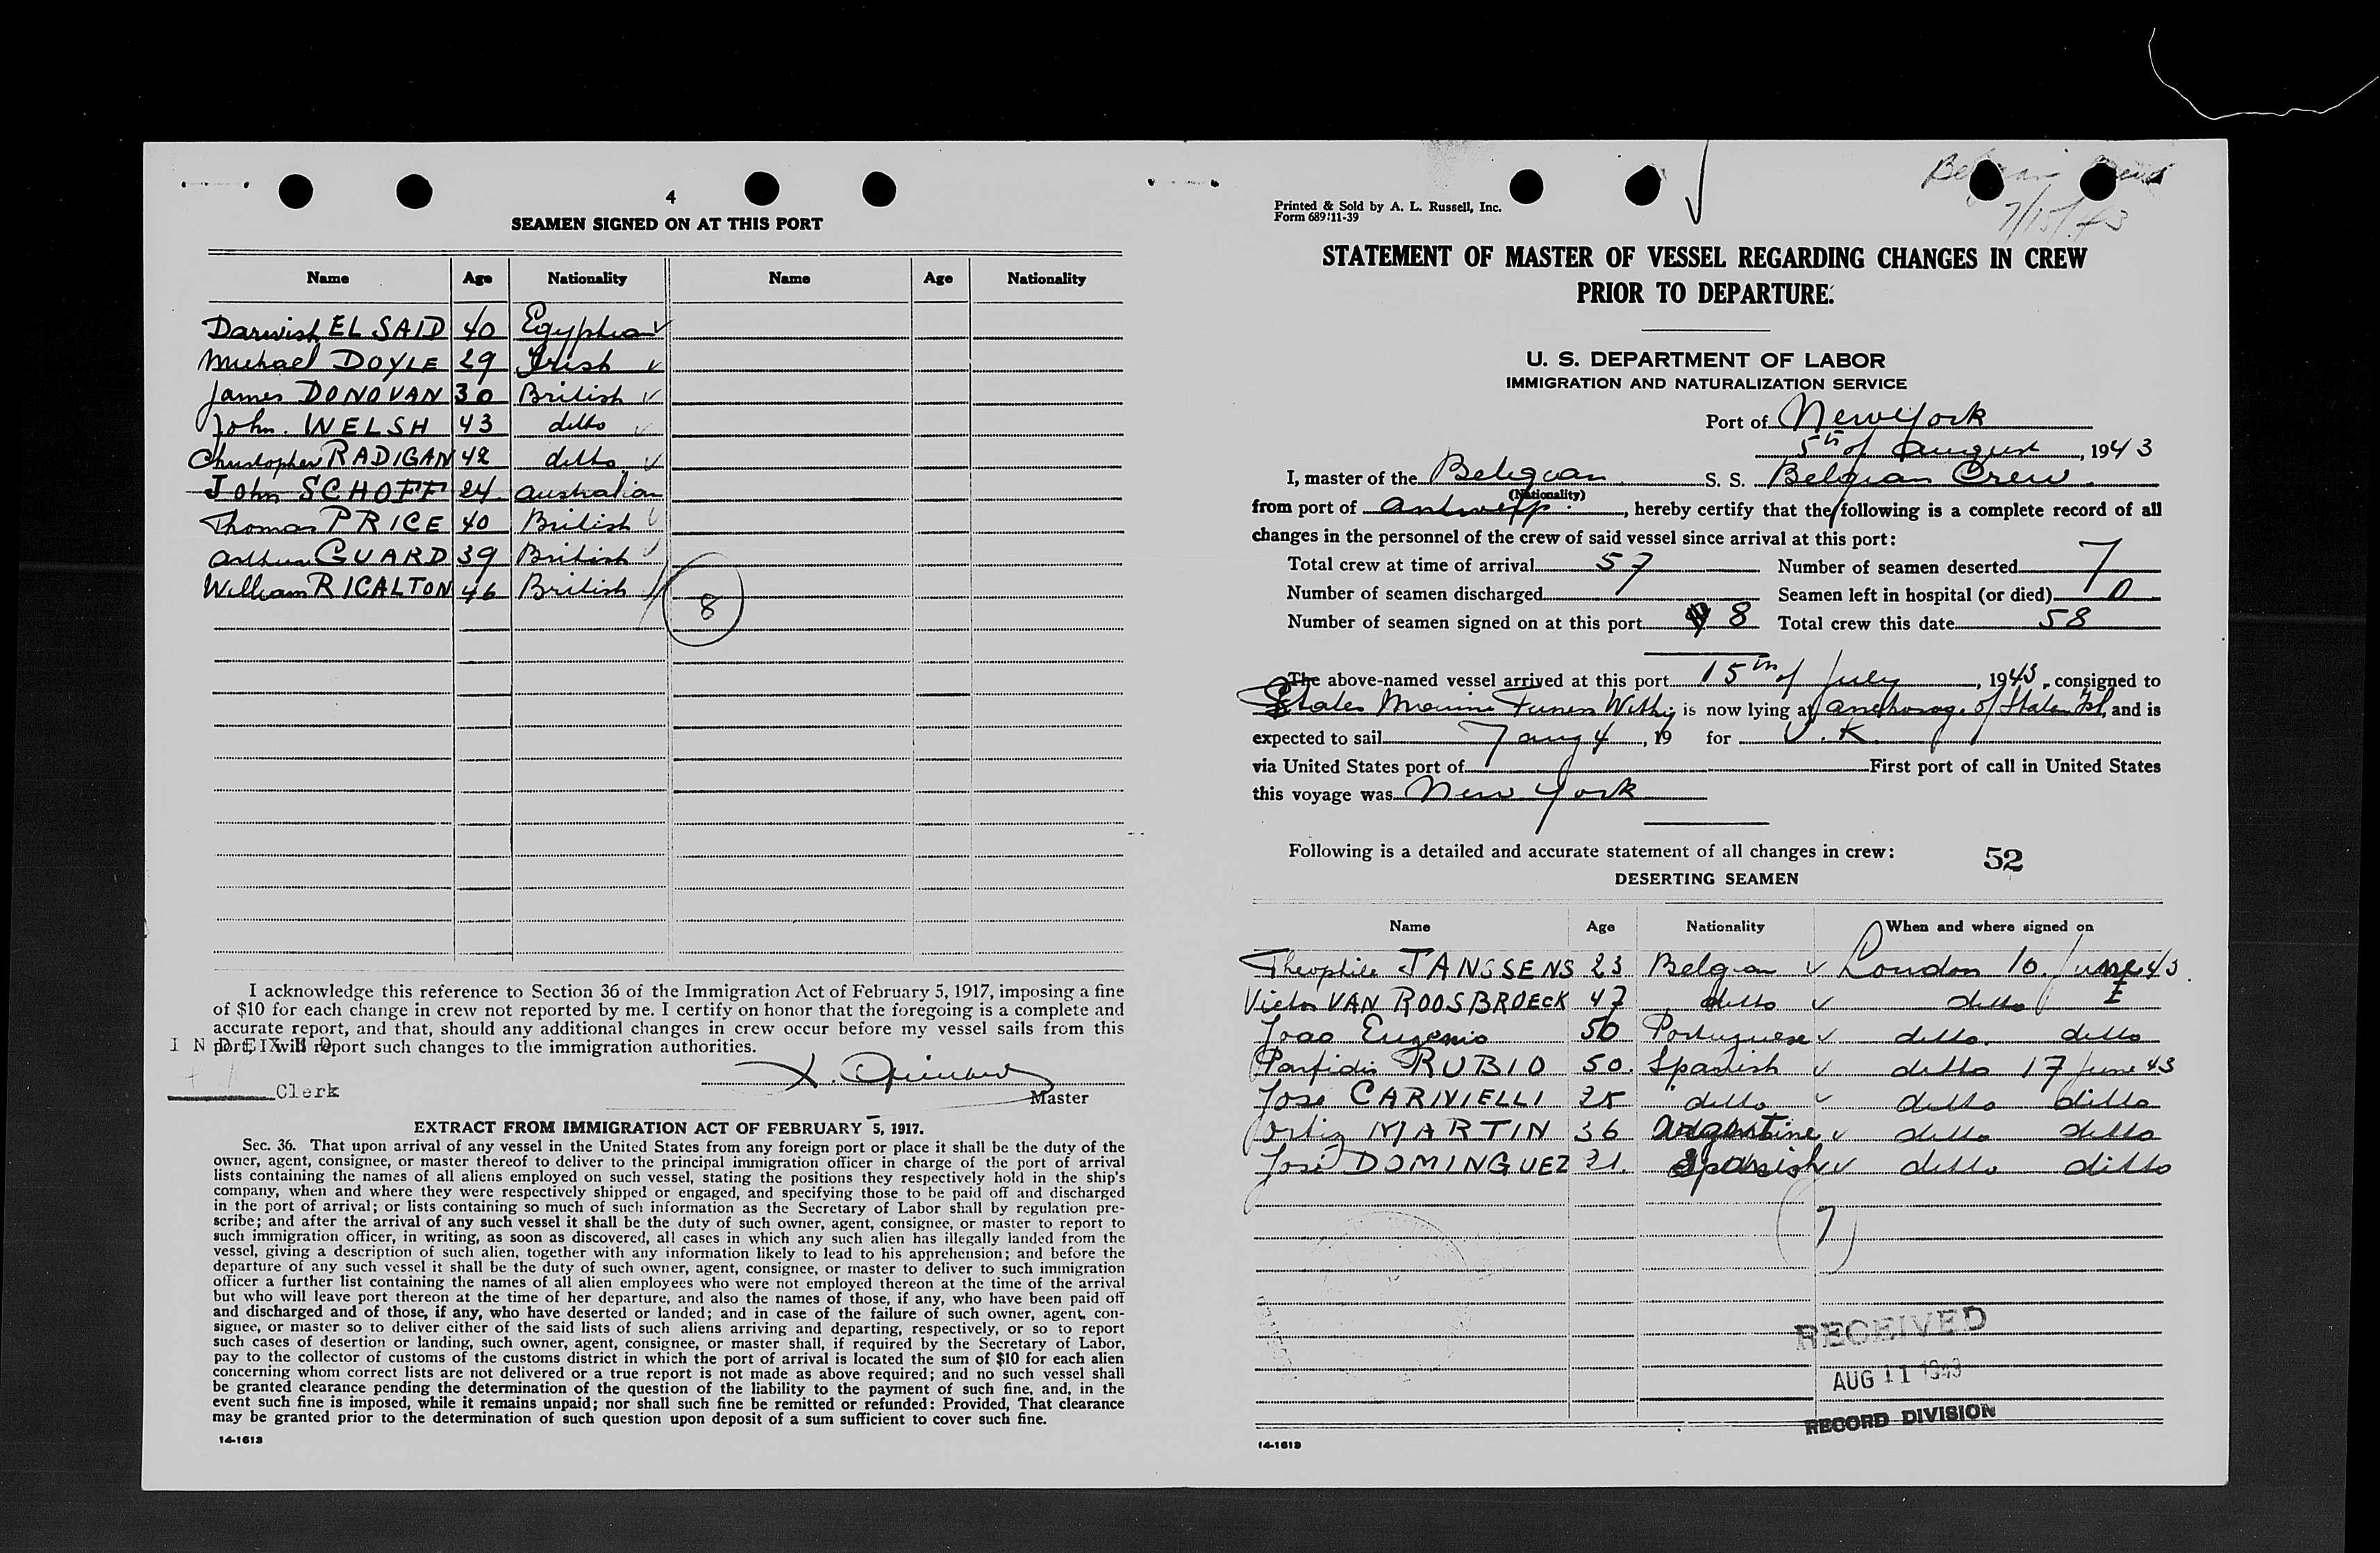 4
SEAMEN SIGNED ON AT THIS PORT
Name Age Nationality Name Age Nationality
Darwish EL SAID 40 Egyptian
Michael DOYLE 29 Irish
James DONOVAN 30 British
John. WELSH 43 ditto
Christopher RADIGAN 42 ditto
John SCHOFF 24 Australian
Thomas PRICE 40 British
Arthur GUARD 39 British
William RICALTON 46 British
8
I acknowledge this reference to Section 36 of the Immigration Act of February 5, 1917, imposing a fine
of $10 for each change in crew not reported by me. I certify on honor that the foregoing is a complete and
accurate report, and that, should any additional changes in crew occur before my vessel sails from this
port, I will report such changes to the immigration authorities.
INDEXED
Clerk
Master
EXTRACT FROM IMMIGRATION ACT OF FEBRUARY 5, 1917.
Sec. 36. That upon arrival of any vessel in the United States from any foreign port or place it shall be the duty of the
owner, agent, consignee, or master thereof to deliver to the principal immigration officer in charge of the port of arrival
lists containing the names of all aliens employed on such vessel, stating the positions they respectively hold in the ship's
company, when and where they were respectively shipped or engaged, and specifying those to be paid off and discharged
in the port of arrival; or lists containing so much of such information as the Secretary of Labor shall by regulation pre-
scribe; and after the arrival of any such vessel it shall be the duty of such owner, agent, consignee, or master to report to
such immigration officer, in writing, as soon as discovered, all cases in which any such alien has illegally landed from the
vessel, giving a description of such alien, together with any information likely to lead to his apprehension; and before the
departure of any such vessel it shall be the duty of such owner, agent, consignee, or master to deliver to such immigration
officer a further list containing the names of all alien employees who were not employed thereon at the time of the arrival
but who will leave port thereon at the time of her departure, and also the names of those, if any, who have been paid off
and discharged and of those, if any, who have deserted or landed; and in case of the failure of such owner, agent, con-
signee, or master so to deliver either of the said lists of such aliens arriving and departing, respectively, or so to report
such cases of desertion or landing, such owner, agent, consignee, or master shall, if required by the Secretary of Labor,
pay to the collector of customs of the customs district in which the port of arrival is located the sum of $10 for each alien
concerning whom correct lists are not delivered or a true report is not made as above required; and no such vessel shall
be granted clearance pending the determination of the question of the liability to the payment of such fine, and, in the
event such fine is imposed, while it remains unpaid; nor shall such fine be remitted or refunded: Provided, That clearance
may be granted prior to the determination of such question upon deposit of a sum sufficient to cover such fine.
14-1613
Belgian Crew
7/15/43
Printed & Sold by A. L. Russell, Inc.
Form 689:11-39
STATEMENT OF MASTER OF VESSEL REGARDING CHANGES IN CREW
PRIOR TO DEPARTURE.
U. S. DEPARTMENT OF LABOR
IMMIGRATION AND NATURALIZATION SERVICE
Port of New York
5th of August, 1943
I, master of the Belgian S. S. Belgian Crew.
(Nationality)
from port of Antwerp, hereby certify that the following is a complete record of all
changes in the personnel of the crew of said vessel since arrival at this port:
Total crew at time of arrival 57 Number of seamen deserted 7
Number of seamen discharged Seamen left in hospital (or died) 0
Number of seamen signed on at this port 8 Total crew this date 58
The above-named vessel arrived at this port 15th of July, 1943, consigned to
States Marine Furness Withy is now lying at anchorage of Staten Isl, and is
expected to sail 7 Aug 4, 19 for U. K.
via United States port of First port of call in United States
this voyage was New York
Following is a detailed and accurate statement of all changes in crew:
52
DESERTING SEAMEN
Name Age Nationality When and where signed on
Theophile JANSSENS 23 Belgian London 10 June 43
Victor VAN ROOSBROECK 47 ditto ditto
Joao Eugenio 50 Portuguese ditto ditto
RUBIO 50 Spanish ditto 17 June 43
Jose CARNIELLI 25 ditto ditto ditto
Jortiz MARTIN 36 Argentine ditto ditto
José DOMINGUEZ 21. Spanish ditto ditto
7
RECEIVED
AUG 11 1943
RECORD DIVISION
14-1613